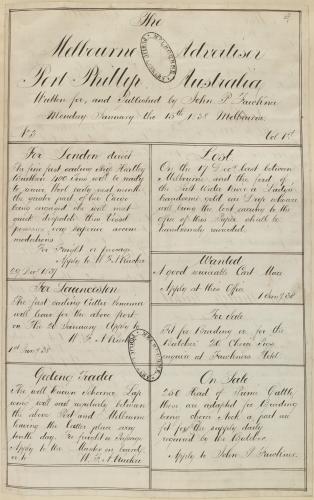 The
Melbourne Advertiser
Port Phillip Australia
Written for and Published by John P. Fawkner
Monday January the 15th 1838 Melbourne
No 3
Vol 1st
For London direct
The fine fast sailing Ship Hartley
400 Tons will be ready
to receive Wool early next month
the greater part of her Cargo
being engaged she will meet
quick dispatch this Vessel
possesses very superior accom
modations
For Freight or passage
Apply to
For Launceston
The fast sailing Cutter
will leave for the above port
on The 20 January Apply to
1st Jan 38
Geelong Trader
The well known Schooner
will sail regularly between
the above Port and Melbourne
leaving the latter place every
tenth day. For freight or Passage
Apply to the Master on board
or to
Lost
On the 17 Dec last between
Melbourne and the ford of
the a Lady's
handsome gold ear Drop whoever
will bring the lost earring to the
office of this Paper shall be
handsomely rewarded
Wanted
A good serviceable Cart Mare
Apply at this Office
For Sale
Fit for Breeding or for the
Butcher 20 Choice Pigs
enquire at Fawkners Hotel
On Sale
250 Head of Prime Cattle
them are adapted for Breeding
being choice Stock a part are
fit for the supply daily
required by the Butcher
Apply to John P. Fawkner